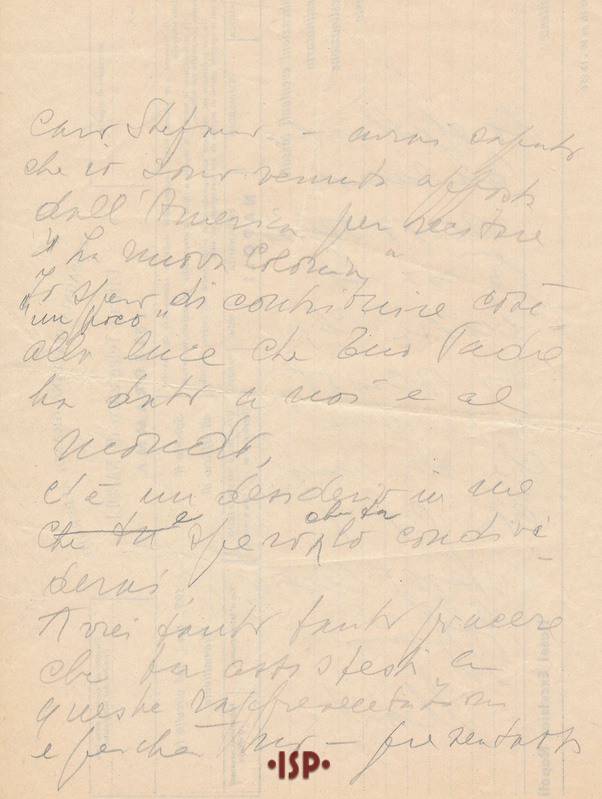 Caro Stefano – avrai saputo
che io sono venuta apposta
dall'America per recitare
"La nuova Colonia"
Io spero di contribuire così
"un poco"
alla luce che tuo Padre
ha dato a noi e al
mondo,
c'è un desiderio in me
che tu e spero che tu lo condivi
derai
Avrei tanto tanto piacere
che tu assistessi a
queste rappresentazioni
e perché no – presentassi
•ISP•